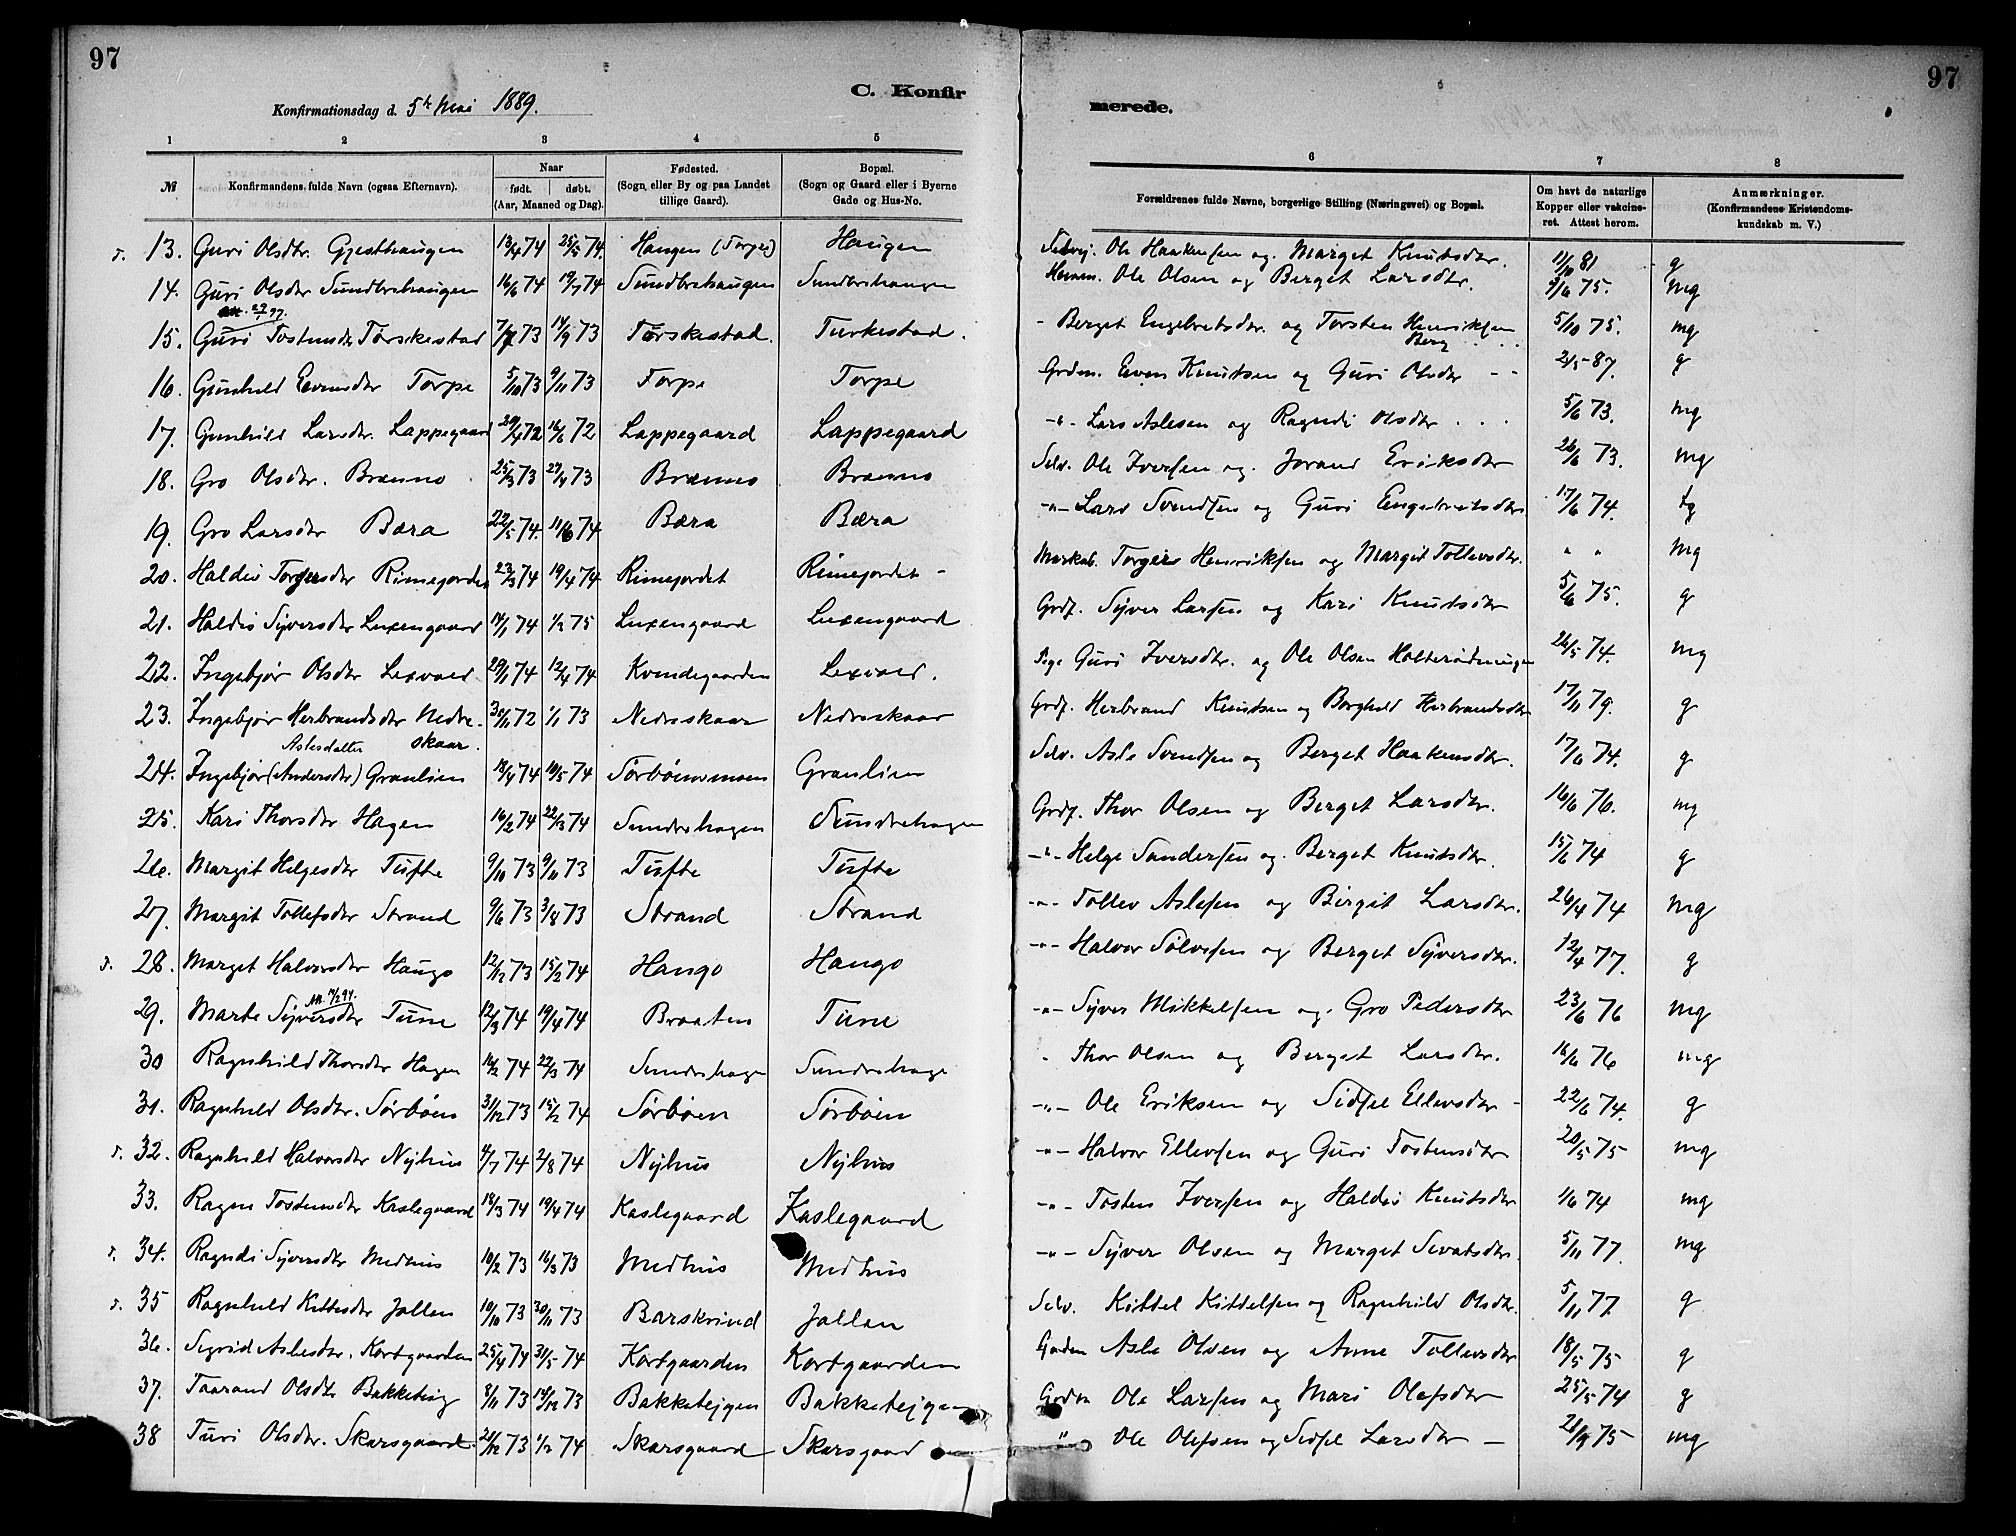 97
97
C. Konfirmerede.
Konfirmationsdag d. 5te Mai 1889.
1 2 3 4 5 6 7 8
№
Konfirmandens fulde Navn (ogsaa Efternavn).
Naar
født. døbt.
(Aar, Maaned og Dag).
Fødested.
(Sogn eller By og paa Landet
tillige Gaard).
Bopæl.
(Sogn og Gaard eller i Byerne
Gade og Hus-No.
Forældrenes fulde Navne, borgerlige Stilling (Næringsvei) og Bopæl.
Om havt de naturlige
Kopper eller vakcine-
ret. Attest herom.
Anmærkninger.
(Konfirmandens Kristendoms-
kundskab m. V.)
13. Guri Olsdtr. Gjesthaugen 13/4 74 25/5 74. Haugen (Torpe) Haugen Ole Haakensen og Marget Knutsdtr. 11/10 81 g
14. Guri Olsdtr Sundbrehaugen 16/6 74 19/7 74 Sundbrehaugen Sundrehaugen Ole Olsen og Berget Larsdtr. 3/6 75. mg
15. Guri Tostensdtr Torskestad 7/7 73 14/9 73 Torskestad. Turkestad. Berget Engebretsdtr. og Torsten Henriksen Berg 5/10 75. mg
16. Gunhild Evensdtr Torpe 5/10 73 9/11 73 Torpe Torpe Grdm. Even Knutsen og Guri Olsdtr 2/5 87. g
17. Gunhild Larsdtr. Lappegaard 29/4 72 16/6 72 Lappegaard Lappegaard -"- Lars Aslesen og Ragndi Olsdtr 5/6 73. mg
18. Gro Olsdtr. Brænno 25/3 73 27/4 73 Brænno Brænno Selv. Ole Iversen og Jorand Eriksdtr 26/6 73. mg
19. Gro Larsdtr Bæra 22/5 74. 11/6 74 Bæra Bæra -"- Lars Svendsen og Guri Engebretsdtr 17/6 74. tg
20. Haldis Torgersdtr Rimejordet 23/3 74 19/4 74 Rimejordet Rimejordet Torgeir Henriksen og Margit Tollevsdtr. " " mg
21. Haldis Syversdtr Luxengaard 14/1 74 1/2 75 Luxengaard Luxengaard Grdf. Syver Larsen og Kari Knutsdtr 5/6 75. g
22. Ingebjør Olsdtr Lexvold 29/1 74 12/4 74 Kvindegaarden Lexvold. Pige Guri Iversdtr. og Ole Olsen 26/5 74. mg
23. Ingebjør Herbrandsdtr Nedreskaar. 30/11 72 1/1 73 Nedreskaar Nedreskaar Grdf. Herbrand Knutsen og Borghild Herbrandsdtr 17/11 79. g
24. Ingebjør (Andersdtr) Aslesdatter Granlien 18/4 74 10/5 74 Sørbøensmoen Granlien Selv. Asle Svendsen og Berget Haakensdtr. 17/6 74. g
25. Kari Thorsdtr Hagen 16/2 74 22/3 74 Sundrehagen Sundrehagen Grdf. Thor Olsen og Berget Larsdtr. 16/6 76. mg
26. Margit Helgesdtr Tufte 9/10 73 9/11 73 Tufte Tufte -"- Helge Sandersen og Berget Knutsdtr. 15/6 74 g
27. Margit Tollefsdtr Strand 9/6 73 3/8 73 Strand Strand -"- Tollev Aslesen og Birgit Larsdtr. 26/4 74 mg
28. Marget Halvorsdtr Haugo 12/12 73 15/2 74 Haugo Haugo -"- Halvor Sølvesen og Berget Syversdtr. 12/4 77. g
29. Marte Syversdtr Tune 12/3 74 19/4 74 Braaten Tune -"- Syver Mikkelsen og Gro Pedersdtr 23/6 76 mg
30 Ragnhild Thorsdtr Hagen 16/2 74 22/3 74 Sundrehage Sundrehage " Thor Olsen og Berget Larsdtr. 16/6 76 mg
31. Ragnhild Olsdtr. Sørbøen 31/12 73 15/2 74 Sørbøen Sørbøen -"- Ole Eriksen og Sidsel Ellevsdtr 22/6 74. g
32. Ragnhild Halvorsdtr Nyhus 4/7 74 2/8 74 Nyhus Nyhus -"- Halvor Ellevsen og Guri Tostensdtr 20/5 75 mg
33. Ragne Tostensdtr Kaslegaard 18/3 74 19/4 74 Kaslegaard Kaslegaard -"- Tosten Iversen og Haldis Knutsdtr 1/6 74 mg
34. Ragndi Syversdtr Medhus 10/2 73 16/3 73 Medhus Medhus -"- Syver Olsen og Marget Sevatsdtr. 5/11 77. mg
35 Ragnhild Kittelsdtr Jallen 10/10 73 30/11 73 Barskrind Jallen Selv. Kittel Kittelsen og Ragnhild Olsdtr. 5/11 77 g
36. Sigrid Aslesdtr. Kortgaarden 25/4 74 31/5 74 Kortgaarden Kortgaarden Grdm Asle Olsen og Anne Tollevsdtr 18/5 75 g
37. Taarand Olsdtr Bakketeig 8/11 73 14/12 73 Bakketejgen Bakketejgen Grdm Ole Larsen og Mari Olefsdtr 25/5 74 g
38 Turi Olsdtr. Skarsgaard. 21/12 73 1/2 74 Skarsgaard Skarsgaard " Ole Olefsen og Sidsel Larsdtr 21/9 75 mg